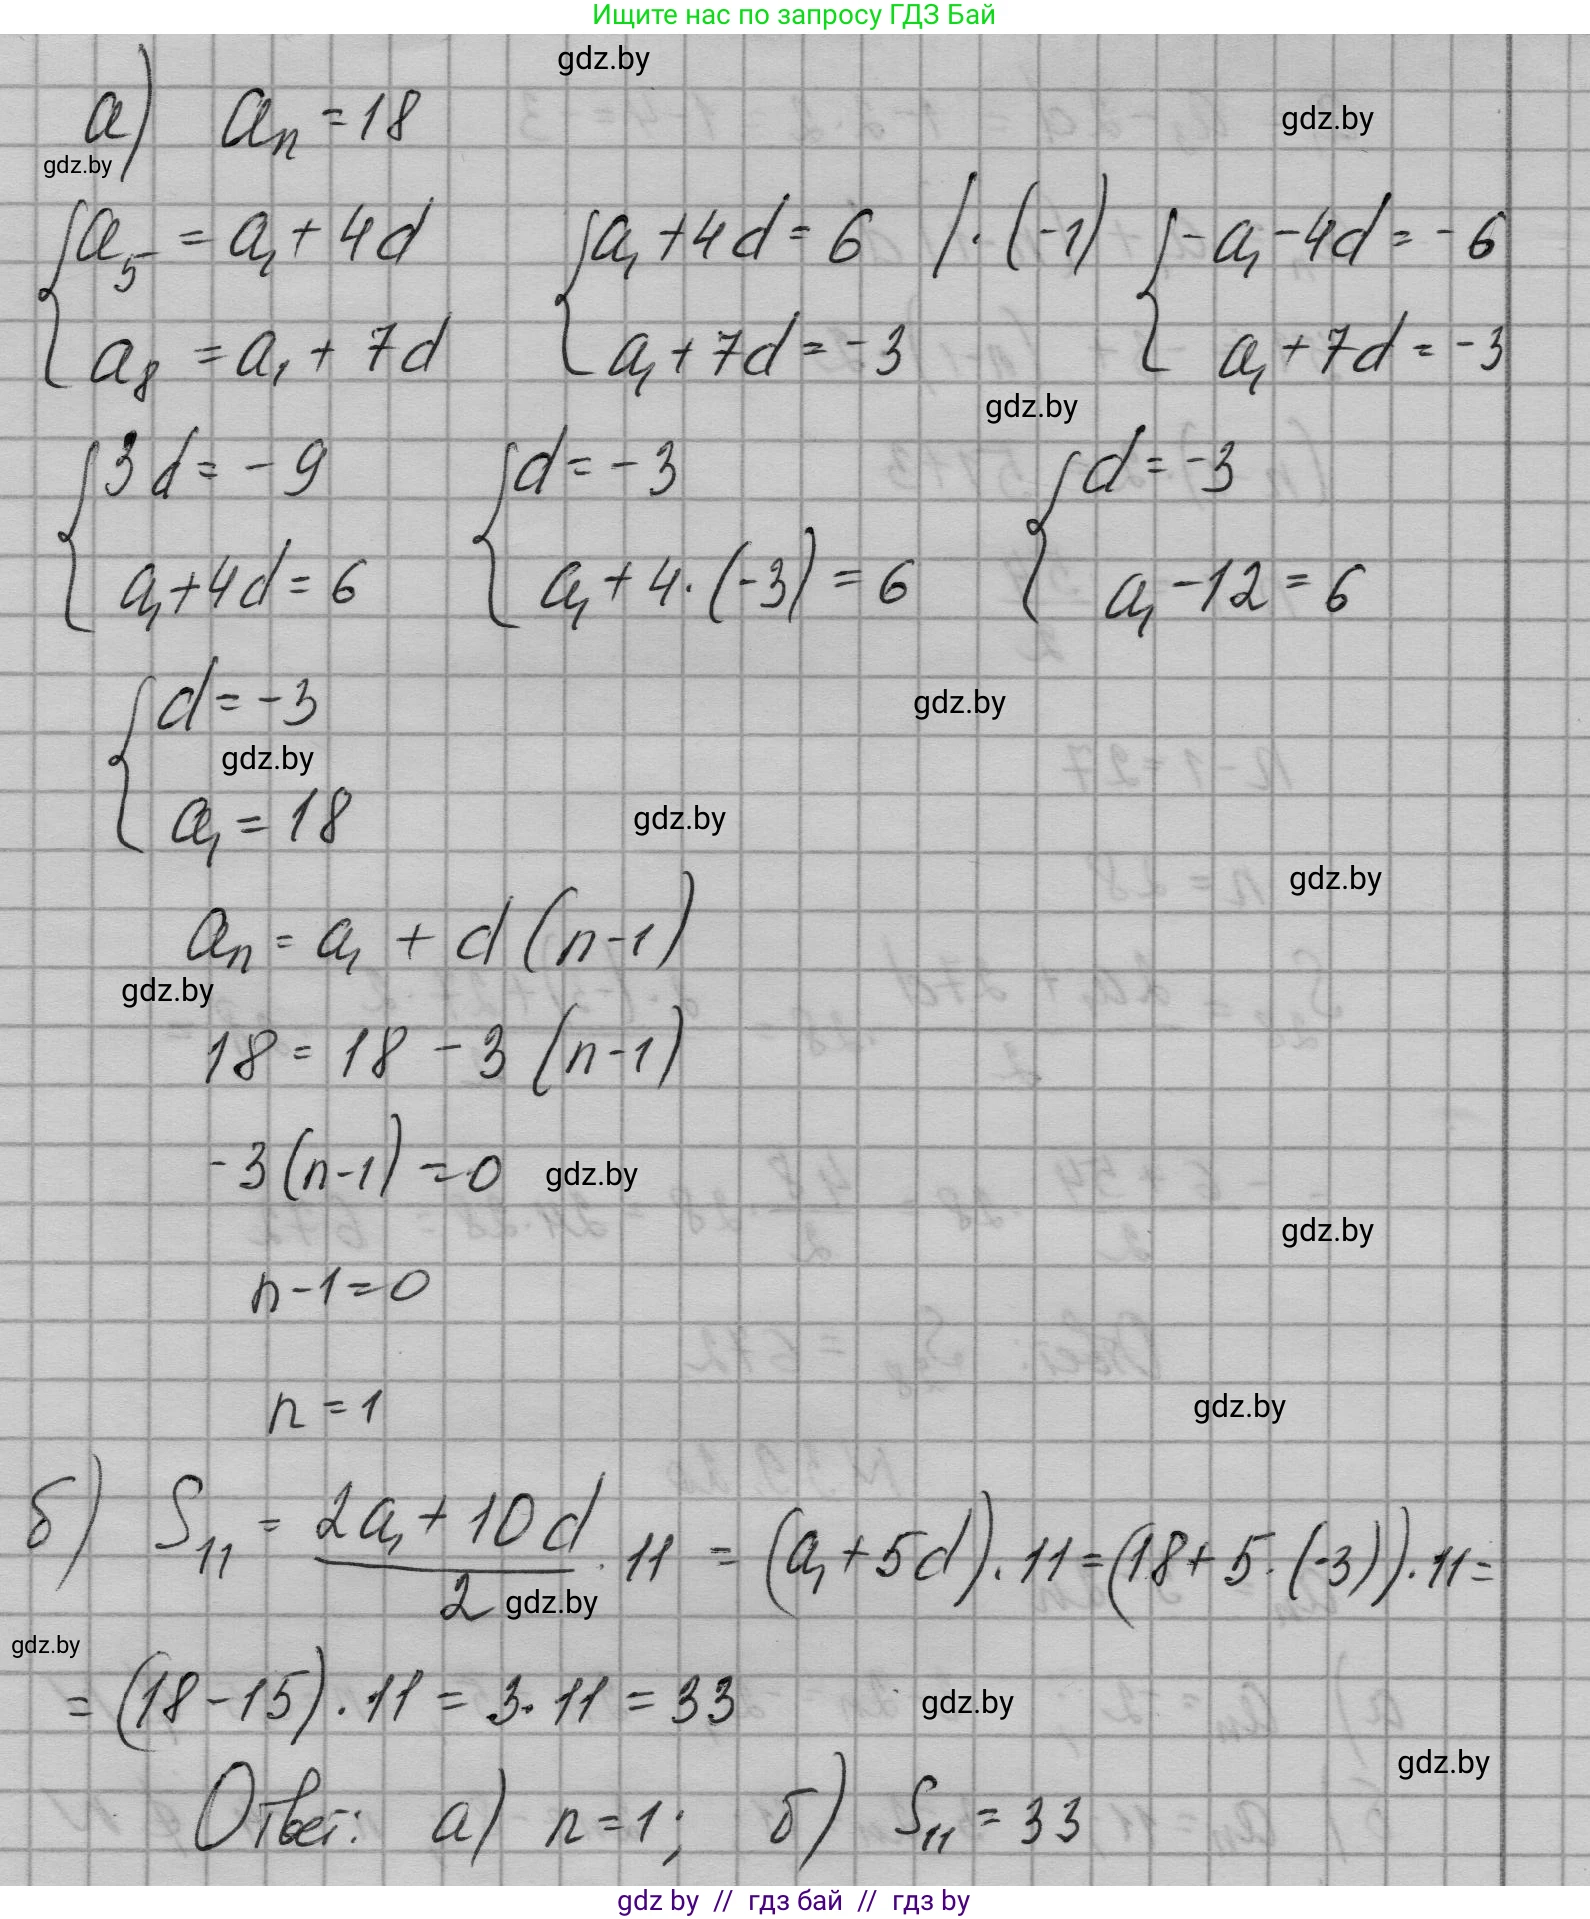 Ищите нас по запросу ГДЗ Бай
gdz.by
gdz.by
а) aₙ = 18
gdz.by
{ a₅ = a₁ + 4d { a₁ + 4d = 6 / · (-1) { -a₁ - 4d = -6
a₈ = a₁ + 7d a₁ + 7d = -3 a₁ + 7d = -3
gdz.by
{ 3d = -9 { d = -3 { d = -3
a₁ + 4d = 6 a₁ + 4 · (-3) = 6 a₁ - 12 = 6
{ d = -3
gdz.by
gdz.by
a₁ = 18
gdz.by
gdz.by
aₙ = a₁ + d (n-1)
gdz.by
18 = 18 - 3 (n-1)
-3 (n-1) = 0
gdz.by
gdz.by
n - 1 = 0
n = 1
gdz.by
б) S₁₁ = (2a₁ + 10d)/2 · 11 = (a₁ + 5d) · 11 = (18 + 5 · (-3)) · 11 =
gdz.by
gdz.by
= (18 - 15) · 11 = 3 · 11 = 33
gdz.by
gdz.by
Ответ: а) n = 1; б) S₁₁ = 33
gdz by // гдз бай // гдз by